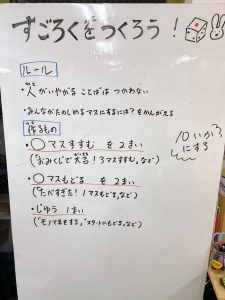 すごろくをつくろう！
ルール
・人がいやがる ことばは つかわない
・みんながたのしめるマスにするには？をかんがえる
作るもの
・〇マスすすむ を 2まい
("おみくじで大吉！3マスすすむ"など)
・〇マスもどる を 2まい
("たべすぎた！1マスもどる"など)
・じゆう 1まい
("モノマネをする","スタートにもどる"など)
10いか
にする